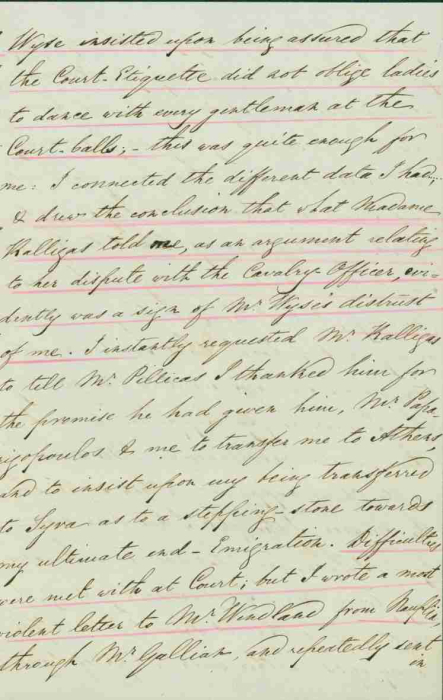 Wyse insisted upon being assured that
the Court-Etiquette did not oblige ladies
to dance with every gentleman at the
Court-balls; - this was quite enough for
me: I connected the different data I had,
& drew the conclusion that what Madame
Kalligas told me, as an argument relating
to her dispute with the Cavalry Officer, evi-
dently was a sign of Mr. Wyse's distrust
of me. I instantly requested Mr. Kalligas
to tell Mr. Pillicas I thanked him for
the promise he had given him, Mr. Papa-
rigopoulos & me to transfer me to Athens,
and to insist upon my being transferred
to Syra as to a stepping-stone towards
my ultimate end - Emigration. Difficulties
were met with at Court; but I wrote a most
violent letter to Mr. Windland from Nauplia,
through Mr. Gallian, and repeatedly sent
in